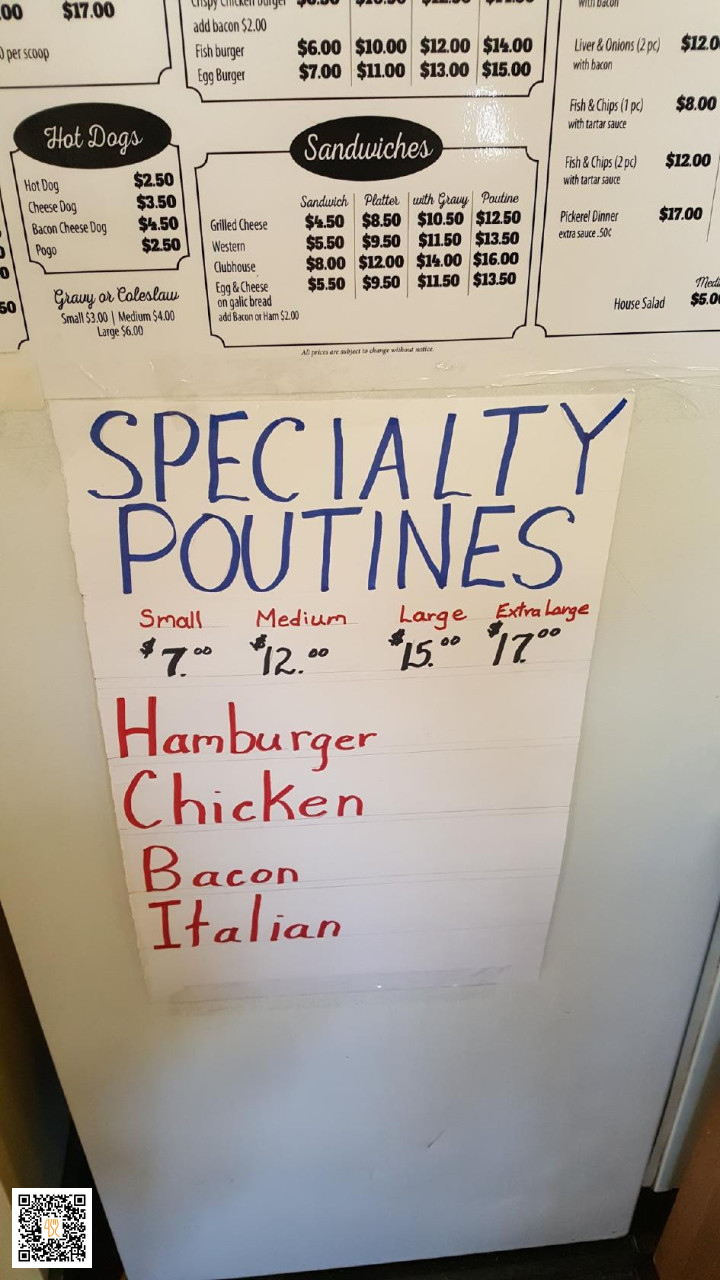 .00 $17.00
per scoop
add bacon $2.00
Fish burger $6.00 $10.00 $12.00 $14.00
Egg Burger $7.00 $11.00 $13.00 $15.00
with bacon
Liver & Onions (2 pc)
with bacon
Fish & Chips (1 pc) $8.00
with tartar sauce
Fish & Chips (2 pc) $12.00
with tartar sauce
Pickerel Dinner $17.00
extra sauce .50¢
House Salad
Hot Dogs
Hot Dog $2.50
Cheese Dog $3.50
Bacon Cheese Dog $4.50
Pogo $2.50
Gravy or Coleslaw
Small $3.00 | Medium $4.00
Large $6.00
Sandwiches
Sandwich Platter with Gravy Poutine
Grilled Cheese $4.50 $8.50 $10.50 $12.50
Western $5.50 $9.50 $11.50 $13.50
Clubhouse $8.00 $12.00 $14.00 $16.00
Egg & Cheese $5.50 $9.50 $11.50 $13.50
on galic bread
add Bacon or Ham $2.00
All prices are subject to change without notice.
SPECIALTY
POUTINES
Small Medium Large Extra Large
$7.00 $12.00 $15.00 $17.00
Hamburger
Chicken
Bacon
Italian